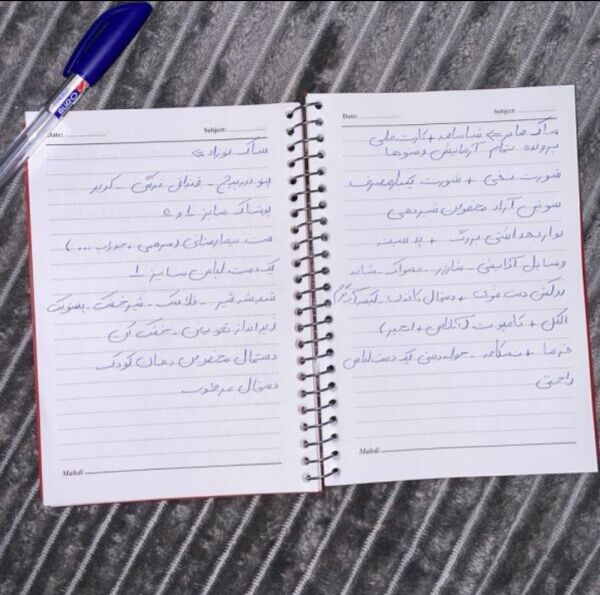 BURO
Date:
Subject:
ساک مادر => شناسنامه + کارت ملی
پرونده تمام آزمایش و سنوها
شورت نخی + شورت یکبارمصرف
سوتین آزاد مخصوص شیردهی
نوار بهداشتی بزرگ +
وسایل آرایشی - شارژر - مسواک - شانه
روکش دستشویی + دستمال کاغذی -
الکل + کامپوت (آناناس + انجیر)
خرما + نسکافه - حوله دستی یک دست لباس
راحتی
Mahdi
Date:
Subject:
ساک نوزاد =>
پتو دورپیچ - قنداق فرنگی -
پوشاک سایز ۱ و ۵
ست بیمارستانی (سرهمی + جوراب ....)
یک دست لباس سایز ۱
شیشه شیر - فلاسک - شیرخشک - پستونک
زیرانداز تعویض - خشک کن
دستمال مخصوص دهان کودک
دستمال مرطوب
Mahdi